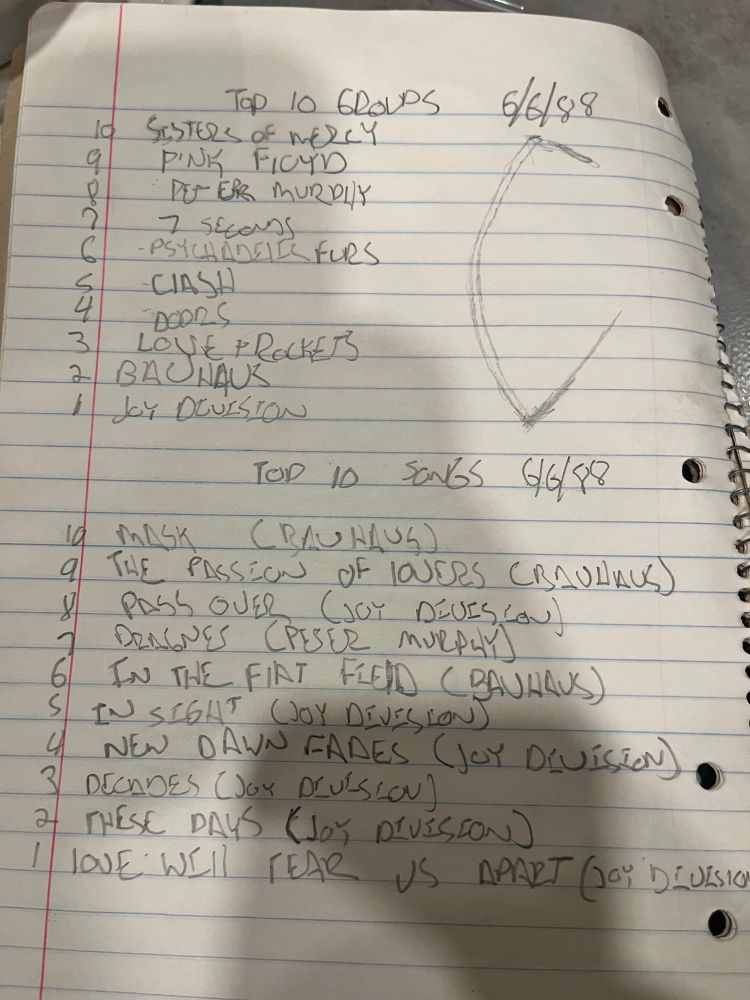 TOP 10 GROUPS 6/6/88
10 SISTERS OF MERCY
9 PINK FLOYD
8 PETER MURPHY
7 7 SECONDS
6 -PSYCHADELIC FURS
5 -CLASH
4 -DOORS
3 LOVE + ROCKETS
2 BAUHAUS
1 JOY DIVISION
TOP 10 SONGS 6/6/88
10 MASK (BAUHAUS)
9 THE PASSION OF LOVERS (BAUHAUS)
8 PASS OVER (JOY DIVISION)
7 DRAGNES (PETER MURPHY)
6 IN THE FLAT FIELD (BAUHAUS)
5 IN SIGHT (JOY DIVISION)
4 NEW DAWN FADES (JOY DIVISION)
3 DECADES (JOY DIVISION)
2 THESE DAYS (JOY DIVISION)
1 LOVE WILL TEAR US APART (JOY DIVISION